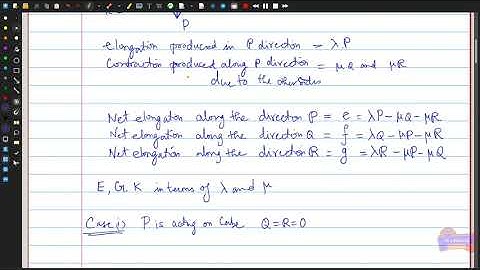 P
elongation produced in P direction = λP
Contraction produced along P direction = μQ and μR
due to the
Net elongation along the direction P = e = λP-μQ-μR
Net elongation along the direction Q = f = λQ-μP-μR
Net elongation along the direction R = g = λR-μP-μQ
E, G, K in terms of λ and μ
Case 1) P is acting on Cube Q=R=0